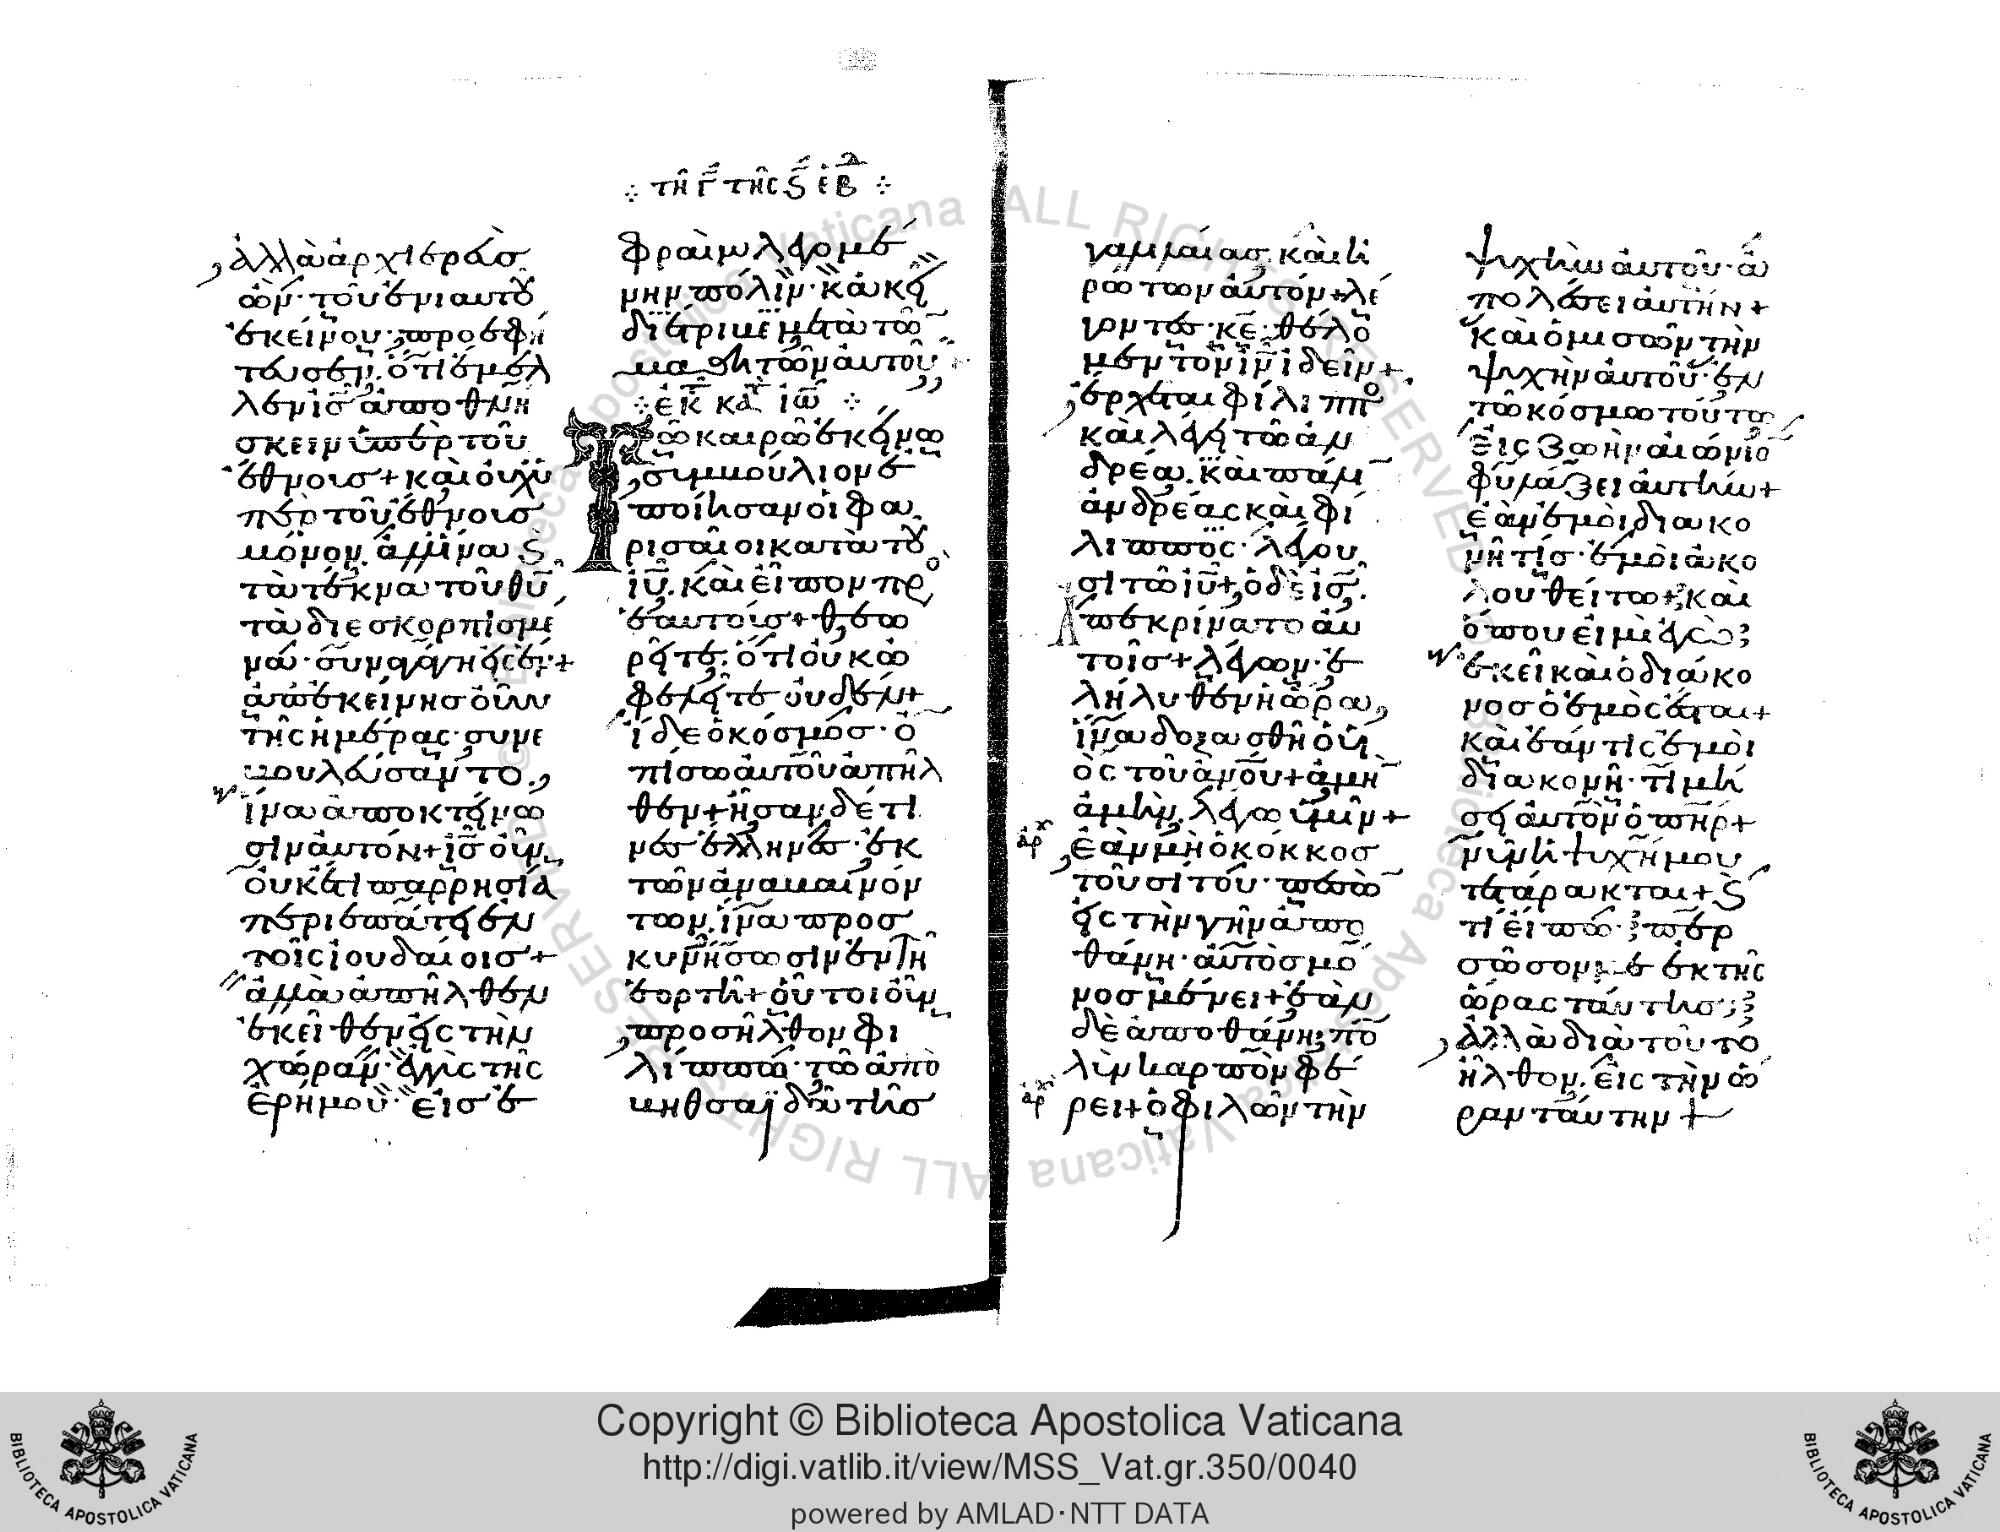 τῆ Γ τῆς ς ἑβδ
ἀλλὰ ἀρχιερεὺς
ὢν τοῦ ἐνιαυτοῦ
ἐκείνου προεφή
τευσεν ὅτι ἔμελ
λεν ις ἀποθνή
σκειν ὑπὲρ τοῦ
ἔθνους + καὶ οὐχ ὑ
πὲρ τοῦ ἔθνους
μόνον ἀλλ ἵνα ϛ
τὰ τέκνα τοῦ θυ
τὰ διεσκορπισμέ
να συναγάγη εἰς ἕν +
ἀπ ἐκείνης οὖν
τῆς ἡμέρας συνε
βουλεύσαντο
ἵνα ἀποκτείνω
σιν αὐτόν + ις οὖν
οὐκέτι παρρησία
περιεπάτει ἐν
τοῖς ἰουδαίοις +
ἀλλὰ ἀπῆλθεν
ἐκεῖθεν εἰς τὴν
χώραν ἐγγὺς τῆς
ἐρήμου εἰς ἐ
φραὶμ λεγομέ
νην πόλιν κἀκεῖ
διέτριβε μετὰ τῶ
μαθητῶν αὐτοῦ
ἐκ κατ ιω
Τῶ καιρῶ ἐκείνω
συμβούλιον ἐ
ποίησαν οἱ φα
ρισαῖοι κατὰ του
ιυ καὶ εἶπον πρὸ
ἑαυτούς + θεω
ρεῖτε ὅτι οὐκ ὠ
φελεῖτε οὐδέν +
ἴδε ὁ κόσμος ὀ
πίσω αὐτοῦ ἀπῆλ
θεν + ἦσαν δέ τι
νες ἕλληνες ἐκ
τῶν ἀναβαινόν
των ἵνα προσ
κυνήσωσιν ἐν τῆ
ἑορτῆ + οὗτοι οὖν
προσῆλθον φι
λίππω τῶ ἀπὸ
βηθσαϊδὰ τῆς
γαλιλαίας καὶ ἠ
ρώτων αὐτόν + λέ
γοντες κε θέλο
μεν τὸν ιν ἰδεῖν +
ἔρχεται φίλιππο
καὶ λέγει τῶ ἀν
δρέα καὶ πάλιν
ἀνδρέας καὶ φί
λιππος λέγου
σι τῶ ιυ + ὁ δὲ ις
ἀπεκρίνατο αὐ
τοῖς + λέγων ἐ
λήλυθεν ἡ ὥρα
ἵνα δοξασθῆ ὁ υἱ
ὸς τοῦ ἀνου + ἀμὴ
ἀμὴν λέγω ὑμῖν +
ἀρχ
ἐὰν μὴ ὁ κόκκος
τοῦ σίτου πεσὼ
εἰς τὴν γῆν ἀπο
θάνη αὐτὸς μό
νος μένει + ἐὰν
δὲ ἀποθάνη πο
λὺν καρπὸν φέ
ἀρχ
ρει + ὁ φιλῶν τὴν
ψυχὴν αὐτοῦ ἀ
πολέσει αὐτήν +
καὶ ὁ μισῶν τὴν
ψυχὴν αὐτοῦ ἐν
τῶ κόσμω τούτω
εἰς ζωὴν αἰώνιο
φυλάξει αὐτὴν +
ἐὰν ἐμοὶ διακο
νῆ τίς ἐμοὶ ἀκο
λουθείτω + καὶ
ὅπου εἰμὶ ἐγὼ
ἐκεῖ καὶ ὁ διάκο
νος ὁ ἐμὸς ἔσται +
καὶ ἐάν τις ἐμοὶ
διακονῆ τιμή
σει αὐτὸν ὁ πηρ +
νῦν ἡ ψυχή μου
τετάρακται + ϛ
τί εἴπω περ
σῶσόν με ἐκ τῆς
ὥρας ταύτης
ἀλλὰ διὰ τοῦτο
ἦλθον εἰς τὴν ὥ
ραν ταύτην +
Copyright © Biblioteca Apostolica Vaticana
http://digi.vatlib.it/view/MSS_Vat.gr.350/0040
powered by AMLAD·NTT DATA
BIBLIOTECA APOSTOLICA VATICANA
BIBLIOTECA APOSTOLICA VATICANA
© Biblioteca Apostolica Vaticana ALL RIGHTS RESERVED
© Biblioteca Apostolica Vaticana ALL RIGHTS RESERVED